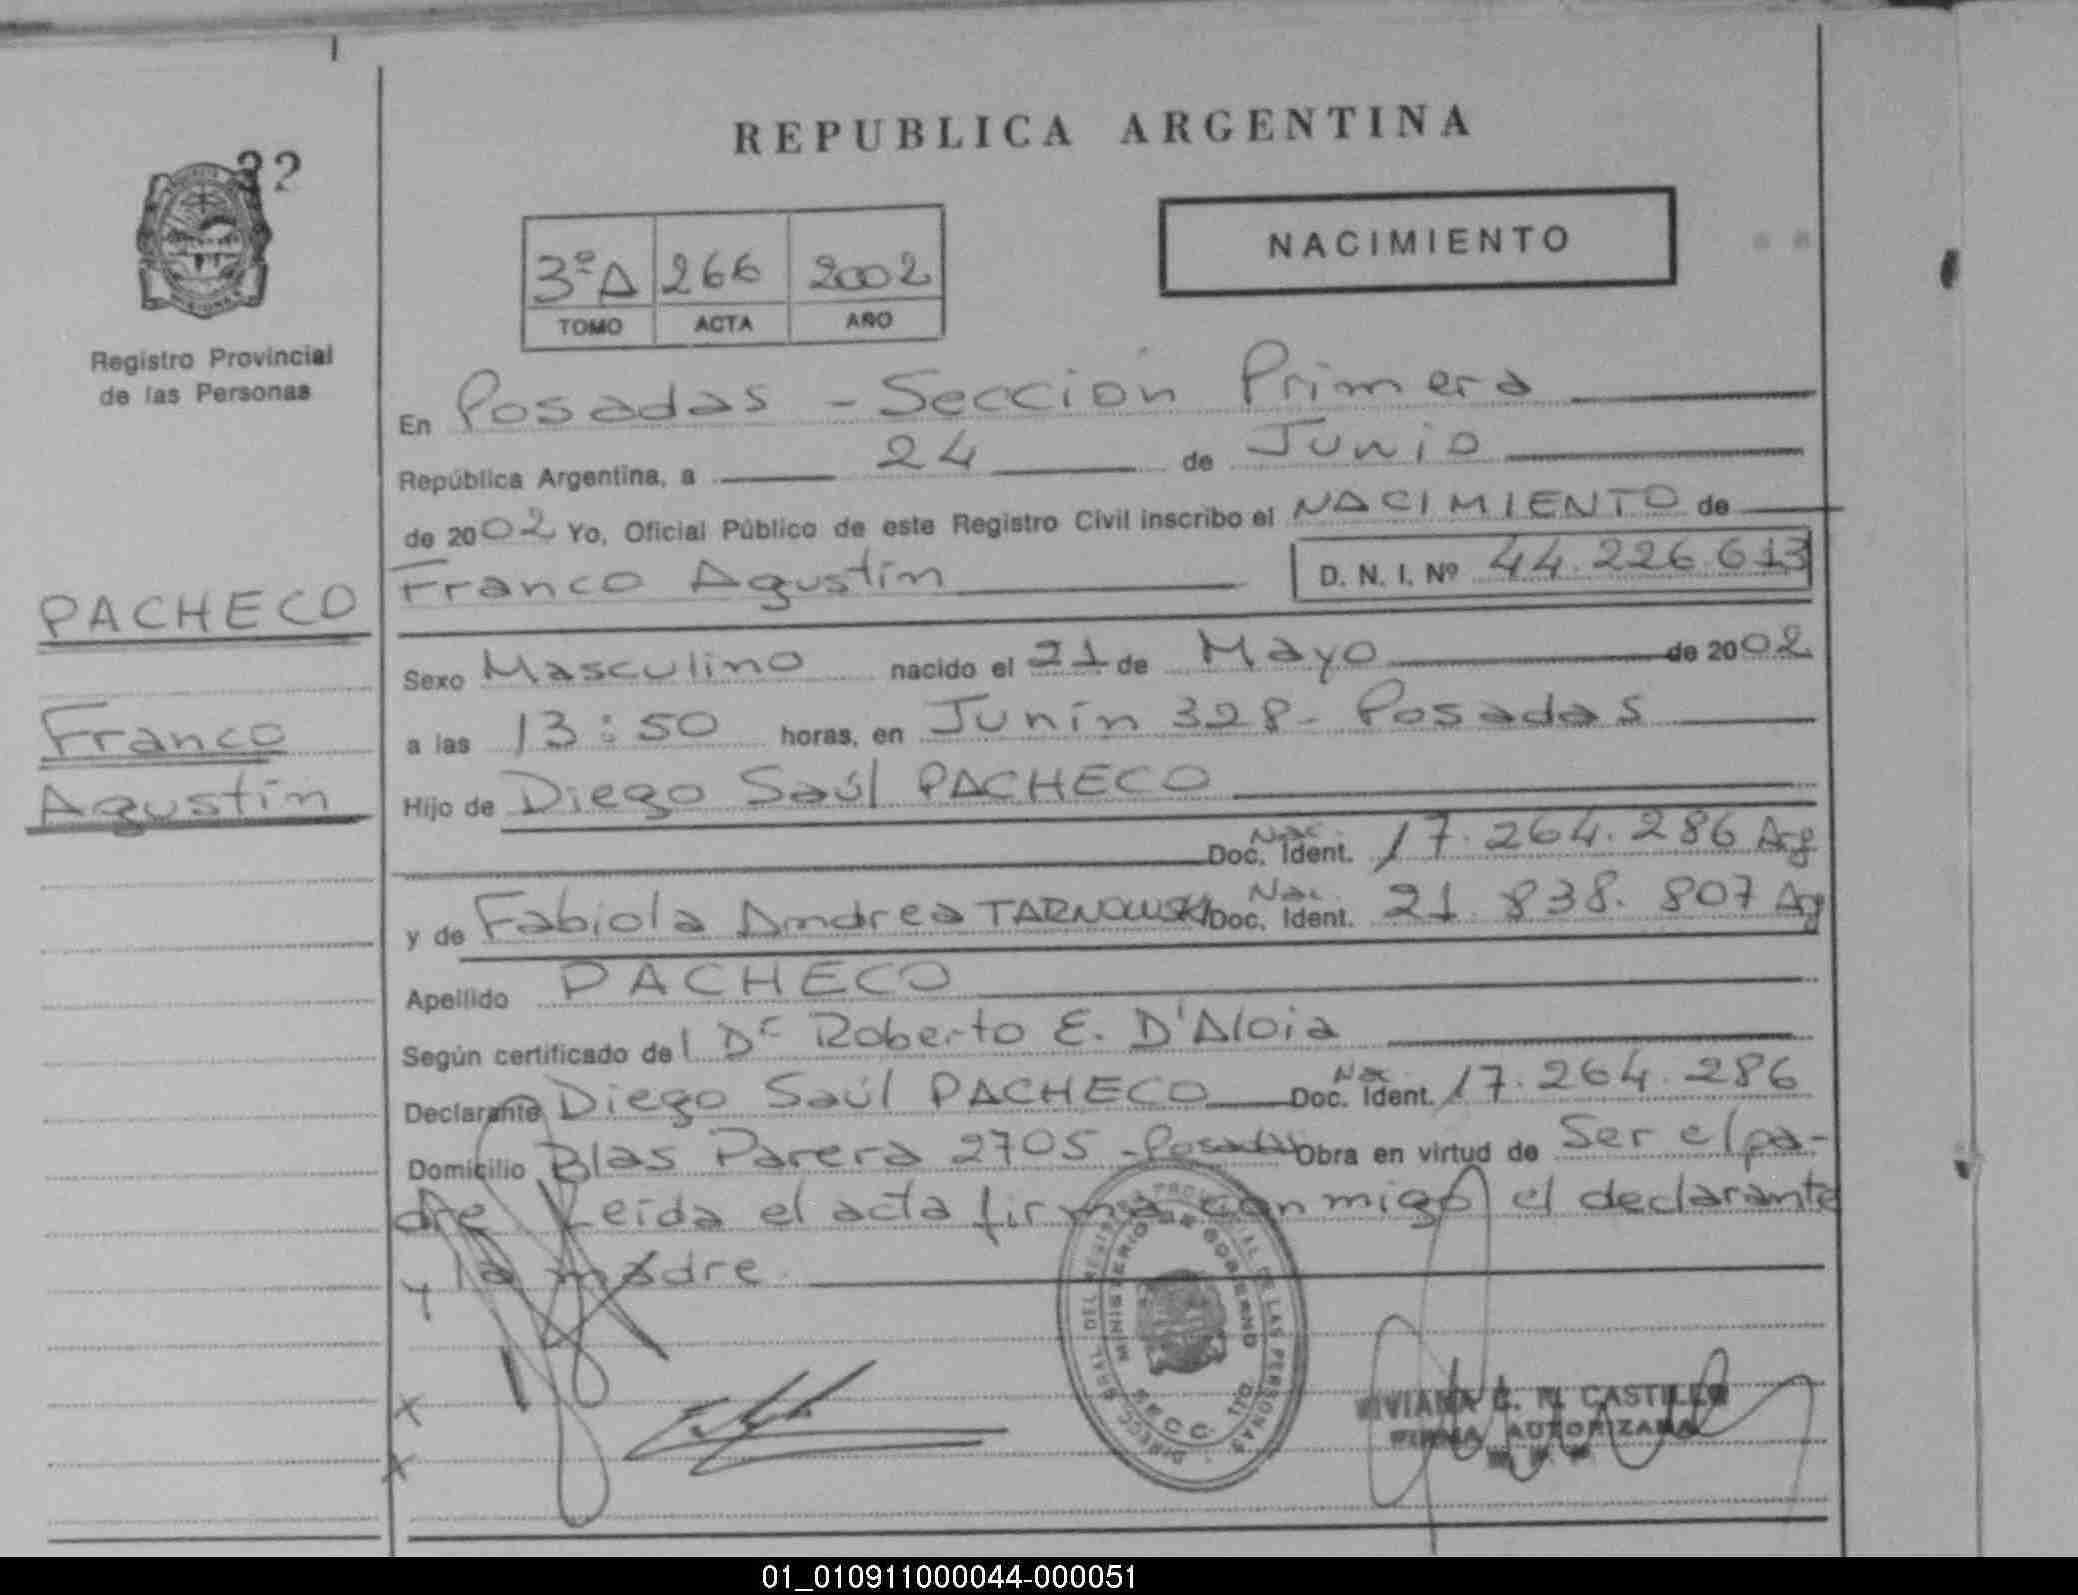 32
REPUBLICA ARGENTINA
NACIMIENTO
3ºA 266 2002
TOMO ACTA AÑO
Registro Provincial
de las Personas
En Posadas - Sección Primera
República Argentina, a 24 de Junio
de 2002 Yo, Oficial Público de este Registro Civil inscribo el NACIMIENTO de
Franco Agustín D. N. I. Nº 44.226.613
PACHECO
Franco
Agustín
Sexo Masculino nacido el 21 de Mayo de 2002
a las 13:50 horas, en Junín 328 - Posadas
Hijo de Diego Saúl PACHECO
Nac.
Doc. Ident. 17.264.286 Arg
Nac.
y de Fabiola Andrea TARNOWSKI Doc. Ident. 21.838.807 Arg
Apellido PACHECO
Según certificado del Dr Roberto E. D'Aloia
Nac
Declarante Diego Saúl PACHECO Doc. Ident. 17.264.286
Domicilio Blas Parera 2705 - Posadas Obra en virtud de Ser el pa-
dre Leída el acta firma conmigo el declarante
y la madre.
MINISTERIO DE GOBIERNO
VIVIANA E. R. CASTILLO
FIRMA AUTORIZADA
01_010911000044-000051